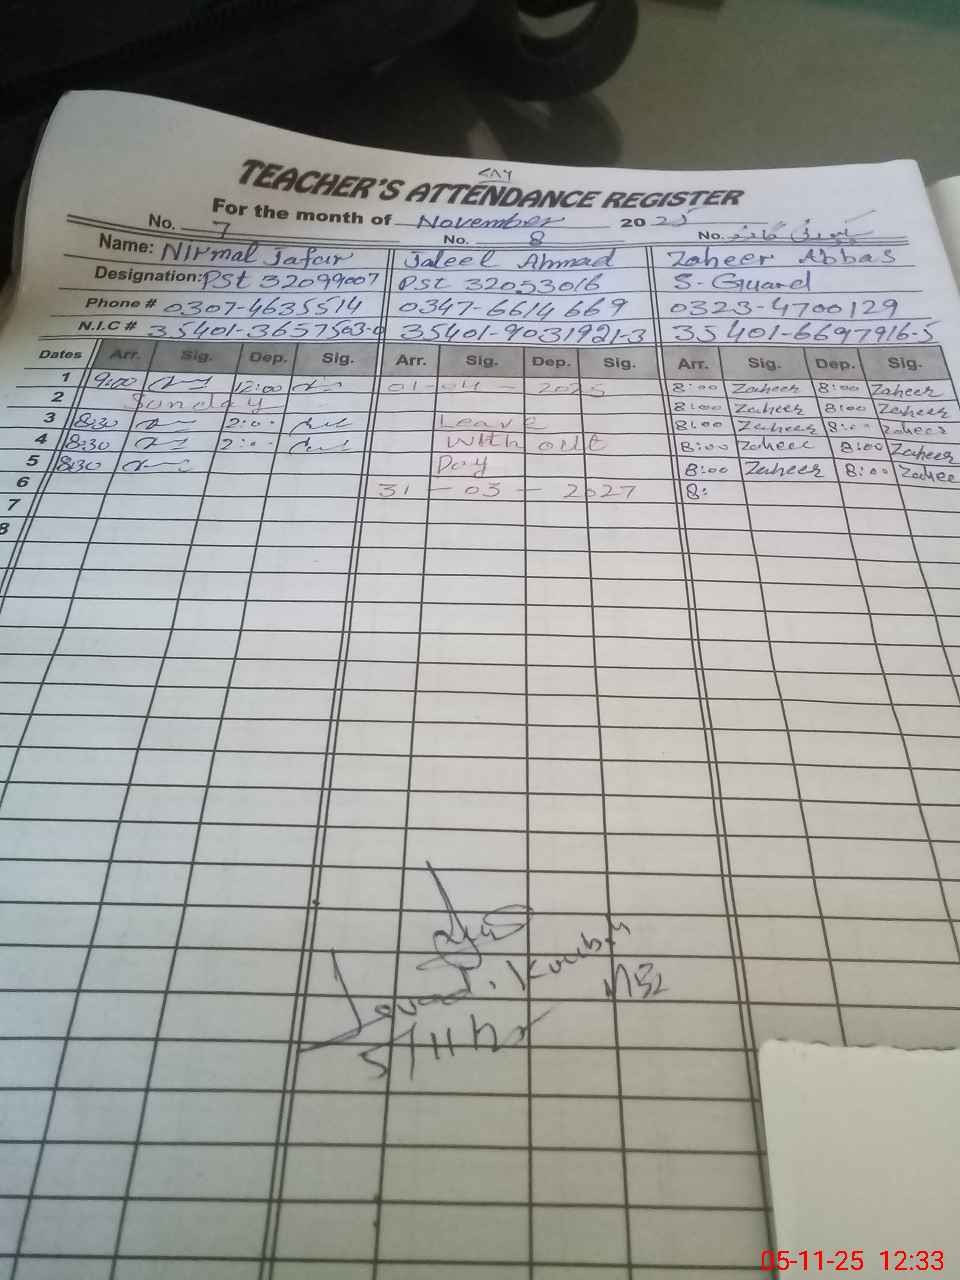 TEACHER'S ATTENDANCE REGISTER
For the month of November 2025
No. 7 No. 8 No.
Name: Nirmal Jafar Jaleel Ahmad Zaheer Abbas
Designation: PST 32099007 PST 32053016 S-Guard
Phone # 0307-4635514 0347-6614669 0323-4700129
N.I.C # 35401-3657503-0 35401-9031921-3 35401-6697916-5
Dates Arr. Sig. Dep. Sig. Arr. Sig. Dep. Sig. Arr. Sig. Dep. Sig.
1 9:00 12:00 01-04-2025 8:00 Zaheer 8:00 Zaheer
2 Sunday 8:00 Zaheer 8:00 Zaheer
3 8:30 2:00 Leave 8:00 Zaheer 8:00 Zaheer
4 8:30 2:00 With out 8:00 Zaheer 8:00 Zaheer
5 8:30 Pay 8:00 Zaheer 8:00 Zaheer
6 31-03-2027 8:
7
8
05-11-25 12:33